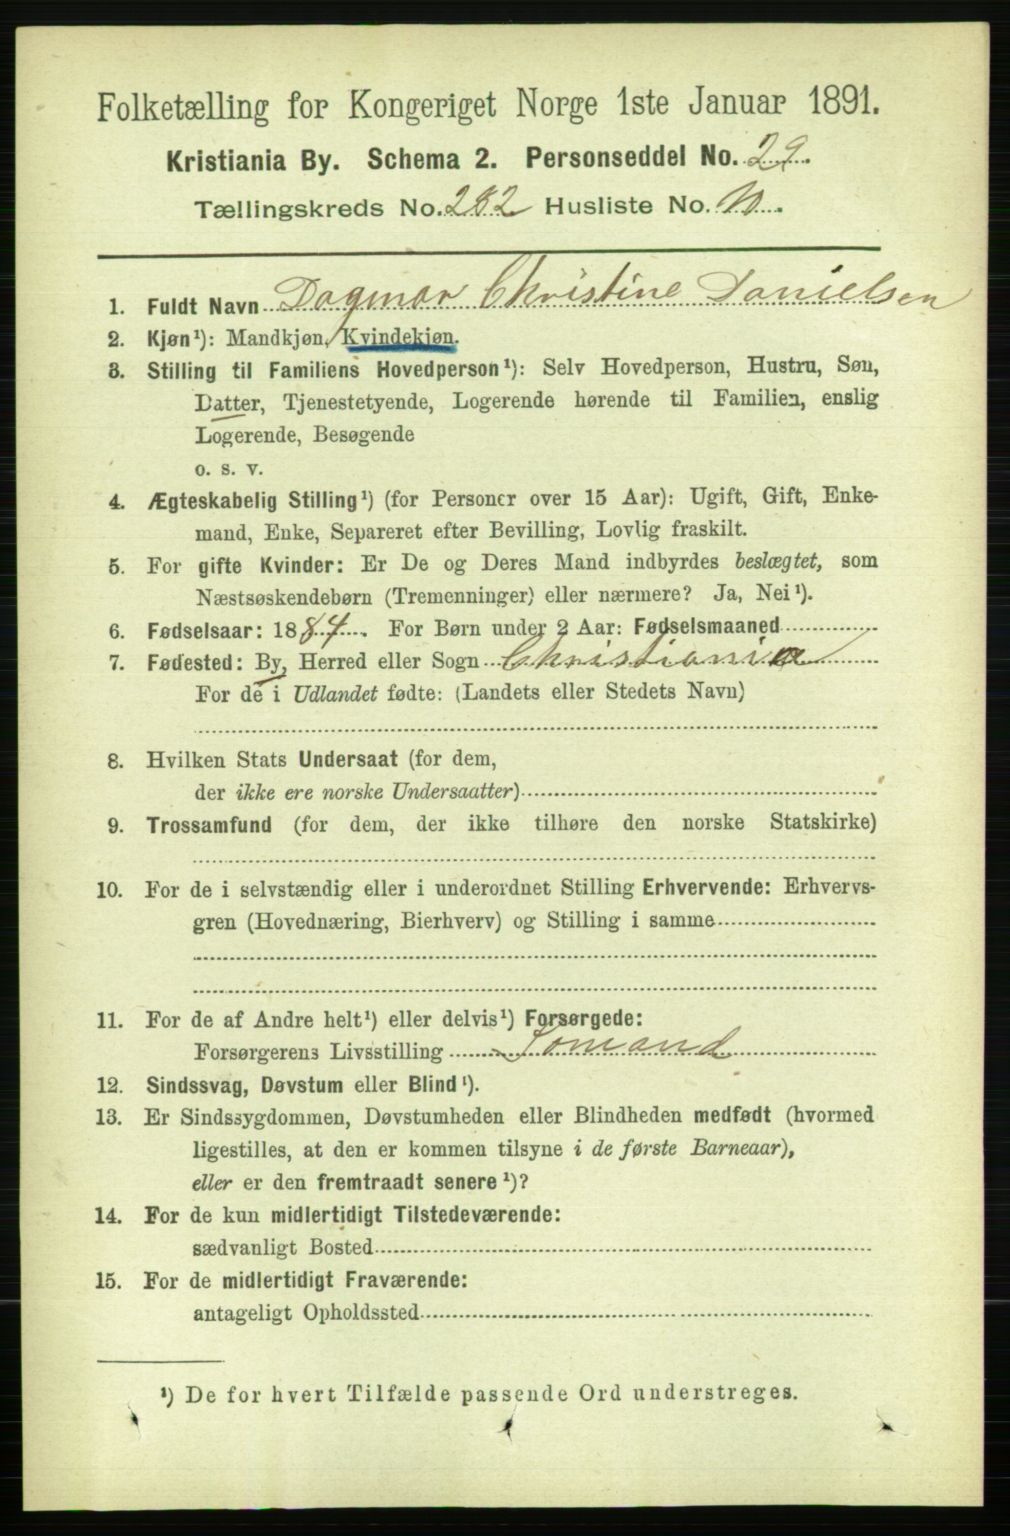 Folketælling for Kongeriget Norge 1ste Januar 1891.
Kristiania By. Schema 2. Personseddel No. 29.
Tællingskreds No. 282 Husliste No.
1. Fuldt Navn Dagmar Christine Danielsen
2. Kjøn¹): Mandkjøn, Kvindekjøn.
3. Stilling til Familiens Hovedperson¹): Selv Hovedperson, Hustru, Søn,
Datter, Tjenestetyende, Logerende hørende til Familien, enslig
Logerende, Besøgende
o. s. v.
4. Ægteskabelig Stilling¹) (for Personer over 15 Aar): Ugift, Gift, Enke-
mand, Enke, Separeret efter Bevilling, Lovlig fraskilt.
5. For gifte Kvinder: Er De og Deres Mand indbyrdes beslægtet, som
Næstsøskendebørn (Tremenninger) eller nærmere? Ja, Nei¹).
6. Fødselsaar: 1884. For Børn under 2 Aar: Fødselsmaaned
7. Fødested: By, Herred eller Sogn Christiania
For de i Udlandet fødte: (Landets eller Stedets Navn)
8. Hvilken Stats Undersaat (for dem,
der ikke ere norske Undersaatter)
9. Trossamfund (for dem, der ikke tilhøre den norske Statskirke)
10. For de i selvstændig eller i underordnet Stilling Erhvervende: Erhvervs-
gren (Hovednæring, Bierhverv) og Stilling i samme
11. For de af Andre helt¹) eller delvis¹) Forsørgede:
Forsørgerens Livsstilling Sømand
12. Sindssvag, Døvstum eller Blind¹).
13. Er Sindssygdommen, Døvstumheden eller Blindheden medfødt (hvormed
ligestilles, at den er kommen tilsyne i de første Barneaar),
eller er den fremtraadt senere¹)?
14. For de kun midlertidigt Tilstedeværende:
sædvanligt Bosted
15. For de midlertidigt Fraværende:
antageligt Opholdssted
¹) De for hvert Tilfælde passende Ord understreges.